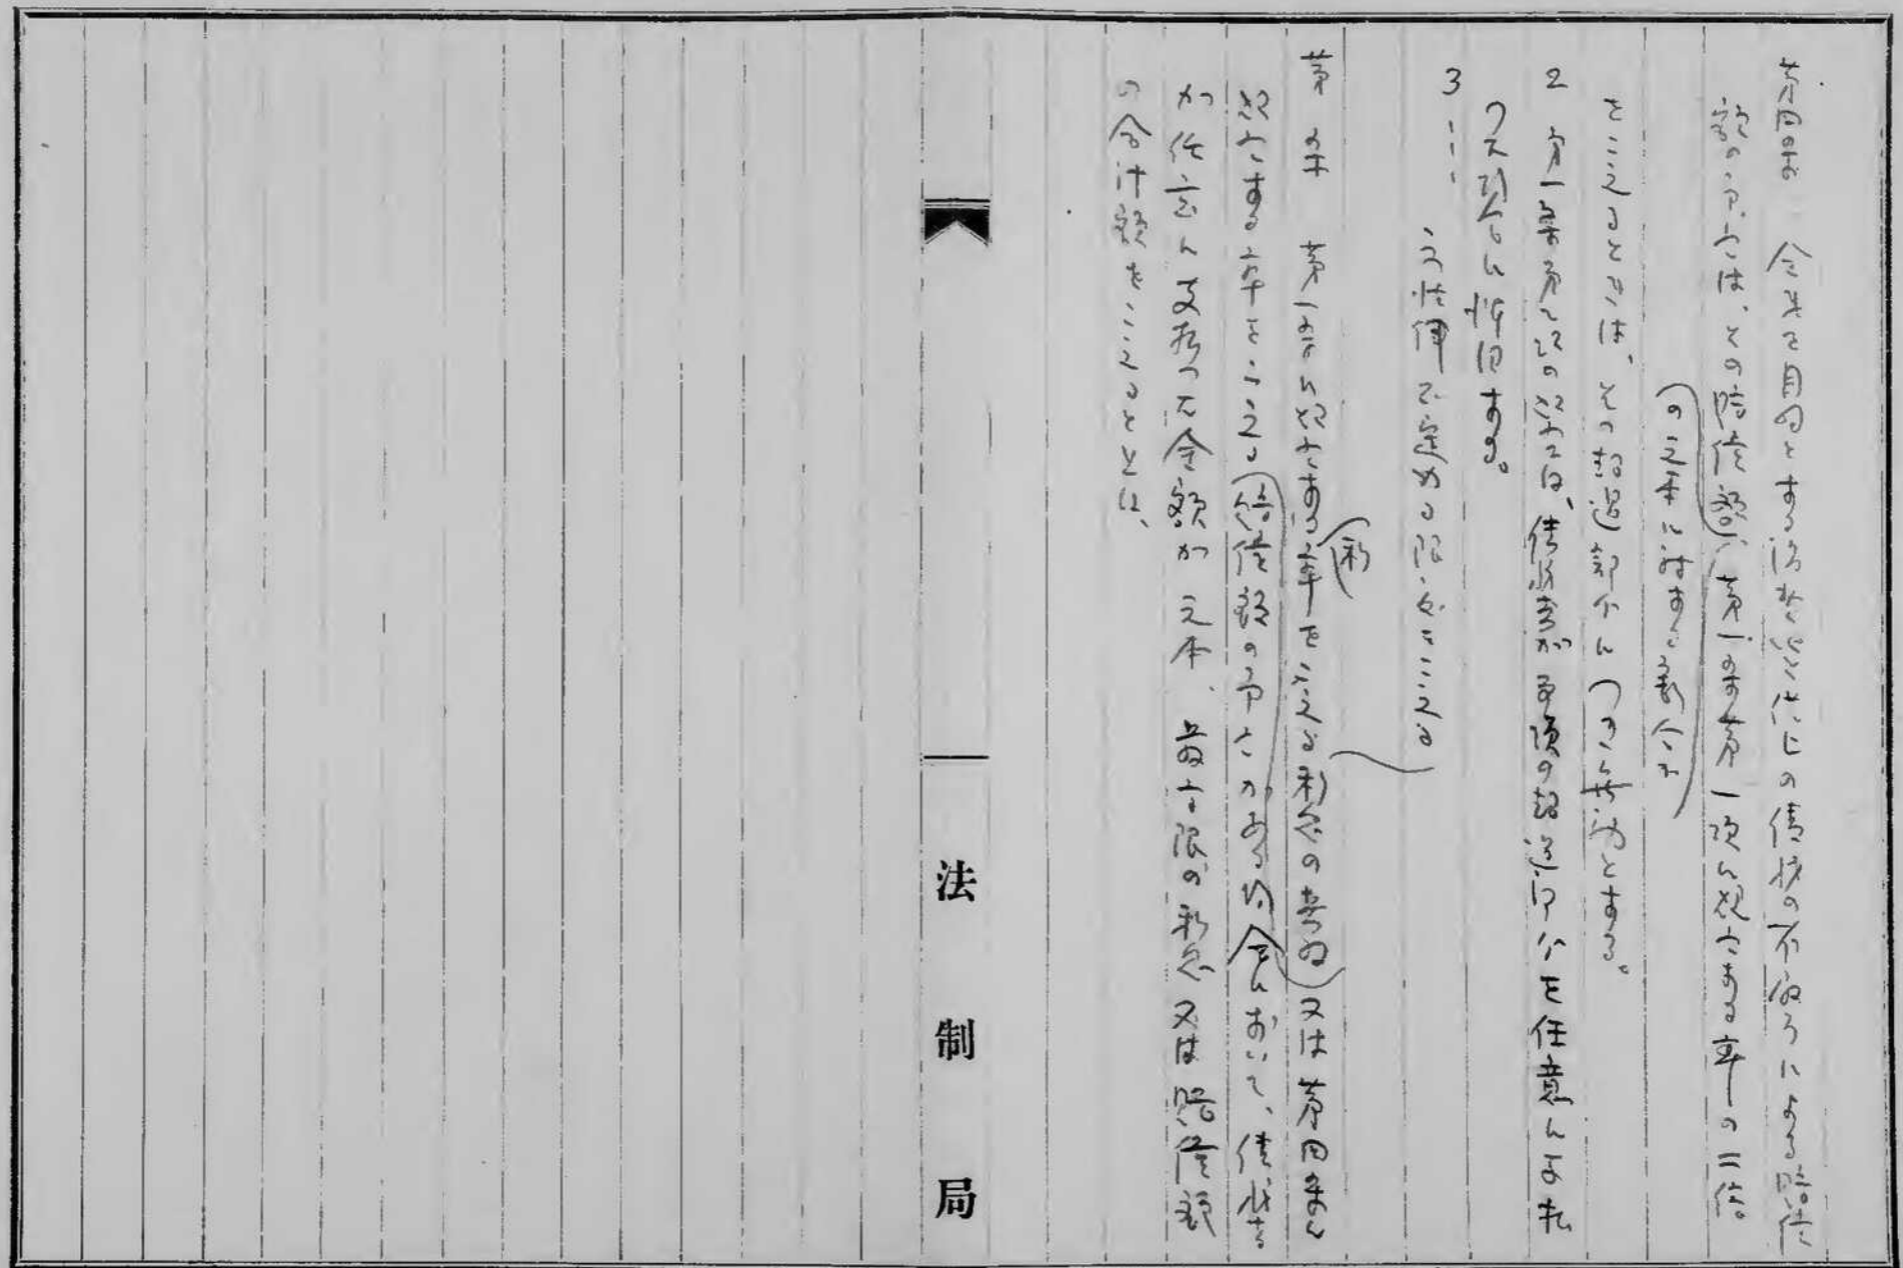 第四条 金銭を目的とする消費貸借上の債務の不履行による賠償
額の予定は、その賠償額の元本に対する割合が、第一条第一項に規定する率の二倍
をこえるときは、その超過部分につき無効とする。
2 第一条第二項の規定は、債務者が前項の超過部分を任意に支払
つた場合に準用する。
3 ……
の法律で定める限度をこえる
第 条 第一条に規定する利率をこえる利息の契約又は第四条に
規定する率をこえる賠償額の予定のある場合において、債務者
が任意に支払つた金額が元本、最高限の利息又は賠償額
の合計額をこえるときは、
法制局